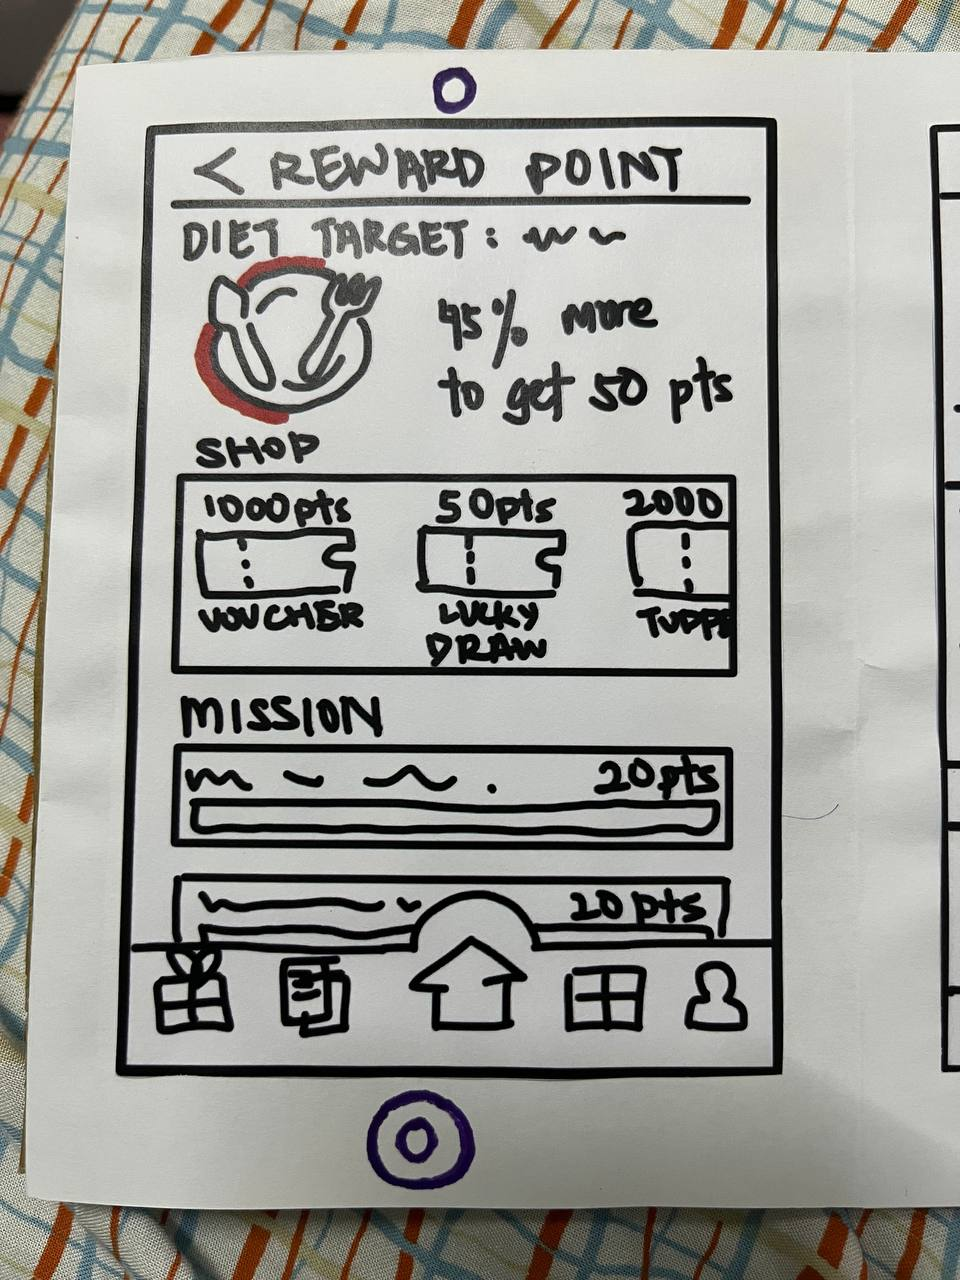 < REWARD POINT
DIET TARGET :
45% more
to get 50 pts
SHOP
1000pts 50pts 2000
VOUCHER LUCKY DRAW TUPPE
MISSION
20pts
20pts